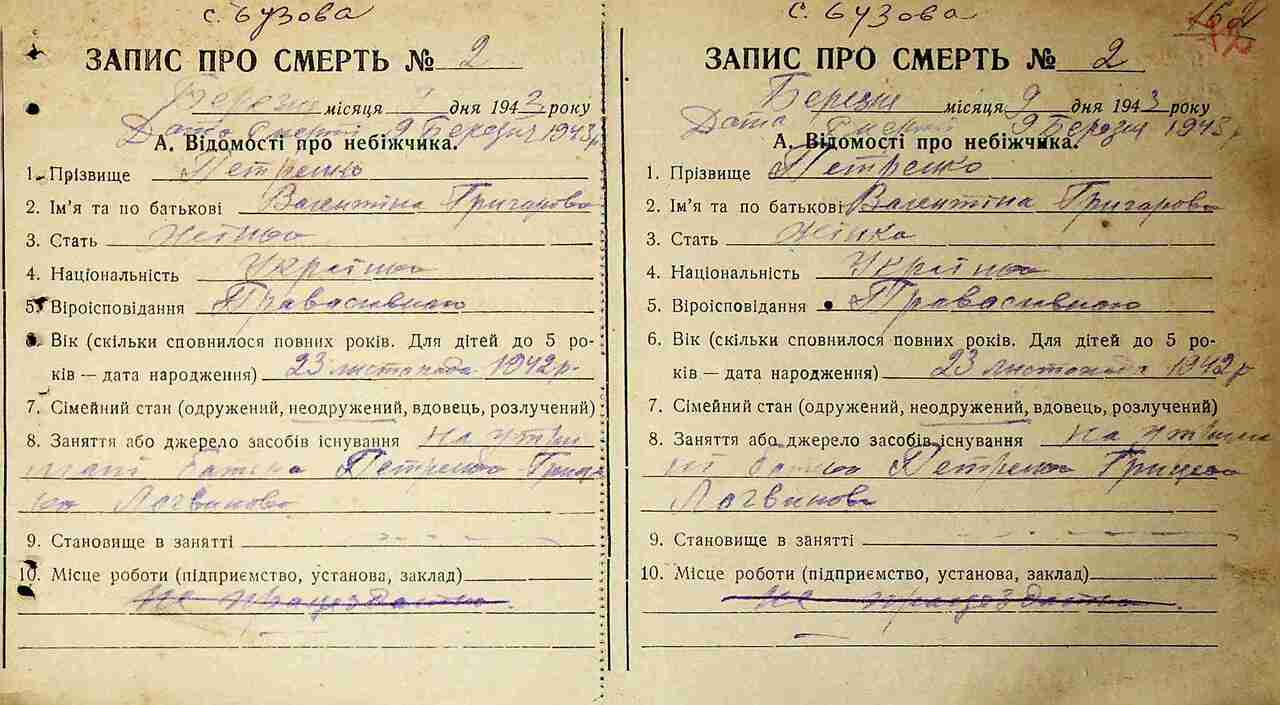 с. Бузова
ЗАПИС ПРО СМЕРТЬ № 2
Березня місяця 9 дня 1943 року
Дата смерті 9 Березня 1943 р
А. Відомості про небіжчика.
1. Прізвище Петренко
2. Ім'я та по батькові Валентіна Григоровн
3. Стать Жінка
4. Національність Українка
5. Віроісповідання Православною
6. Вік (скільки сповнилося повних років. Для дітей до 5 ро-
ків — дата народження) 23 листопада 1942 р.
7. Сімейний стан (одружений, неодружений, вдовець, розлучений)
8. Заняття або джерело засобів існування На утри
мані батька Петренко
Логвинова
9. Становище в занятті
10. Місце роботи (підприємство, установа, заклад)
не працездатна.
с. Бузова
162
ЗАПИС ПРО СМЕРТЬ № 2
Березня місяця 9 дня 1943 року
Дата смерті 9 Березня 1943 р
А. Відомості про небіжчика.
1. Прізвище Петренко
2. Ім'я та по батькові Валентіна Григоровн
3. Стать Жінка
4. Національність Українка
5. Віроісповідання Православною
6. Вік (скільки сповнилося повних років. Для дітей до 5 ро-
ків — дата народження) 23 листопада 1942 р
7. Сімейний стан (одружений, неодружений, вдовець, розлучений)
8. Заняття або джерело засобів існування На утрима
ні батька Петренко Грицька
Логвинова
9. Становище в занятті
10. Місце роботи (підприємство, установа, заклад)
не працездатна.